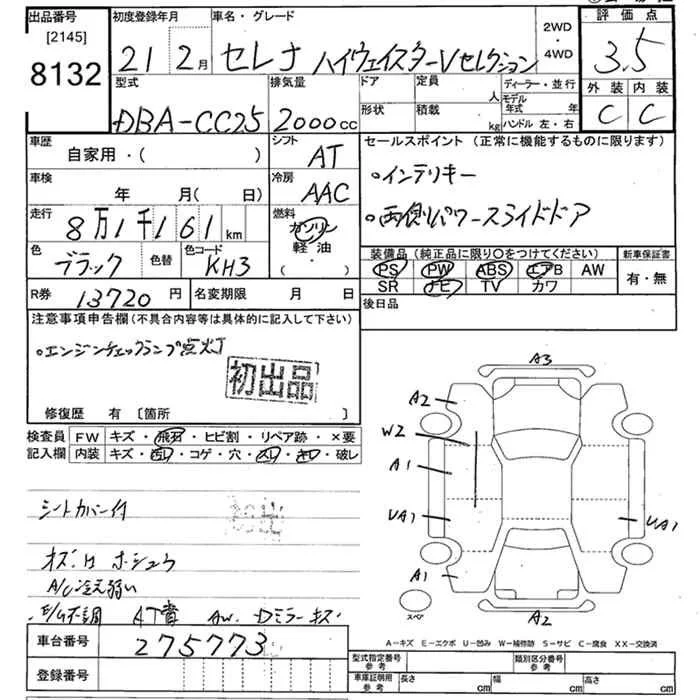 出品番号 [2145] 8132
初度登録年月 21 2月
車名・グレード セレナ ハイウェイスターVセレクション
2WD・4WD
評価点 3.5
外装 内装
C C
型式 DBA-CC25
排気量 2000cc
ドア 定員 人
形状 積載 kg
ディーラー・並行
モデル年式 年
ハンドル 左・右
車歴 自家用・( )
シフト AT
車検 年 月( 日)
冷房 AAC
走行 8万1千161km
燃料 ガソリン・軽油・( )
色 ブラック 色替
色コード KH3
R券 13720円
名変期限 月 日
セールスポイント(正常に機能するものに限ります)
・インテリキー
・両側パワースライドドア
装備品(純正品に限り〇をつけてください)
PS PW ABS エアB AW
SR ナビ TV カワ
新車保証書
有・無
後日品
注意事項申告欄(不具合内容等は具体的に記入して下さい)
・エンジンチェックランプ点灯
初出品
修復歴 有 [箇所 ]
検査員記入欄
FW キズ・飛石・ヒビ割・リペア跡・×要
内装 キズ・凹レ・コゲ・穴・スレ・キレ・破レ
シートカバー付
A/C冷え弱い
E/G不調 AT異 AW、Dミラーキズ
車台番号 275773
登録番号
A3
A2
W2
A1
UA1
UA1
A1
A2
スペア
A-キズ E-エクボ U-凹み W-補修跡 S-サビ C-腐食 XX-交換済
型式指定番号 参考
類別区分番号 参考
車庫証明用 参考 長さ cm 幅 cm 高さ cm